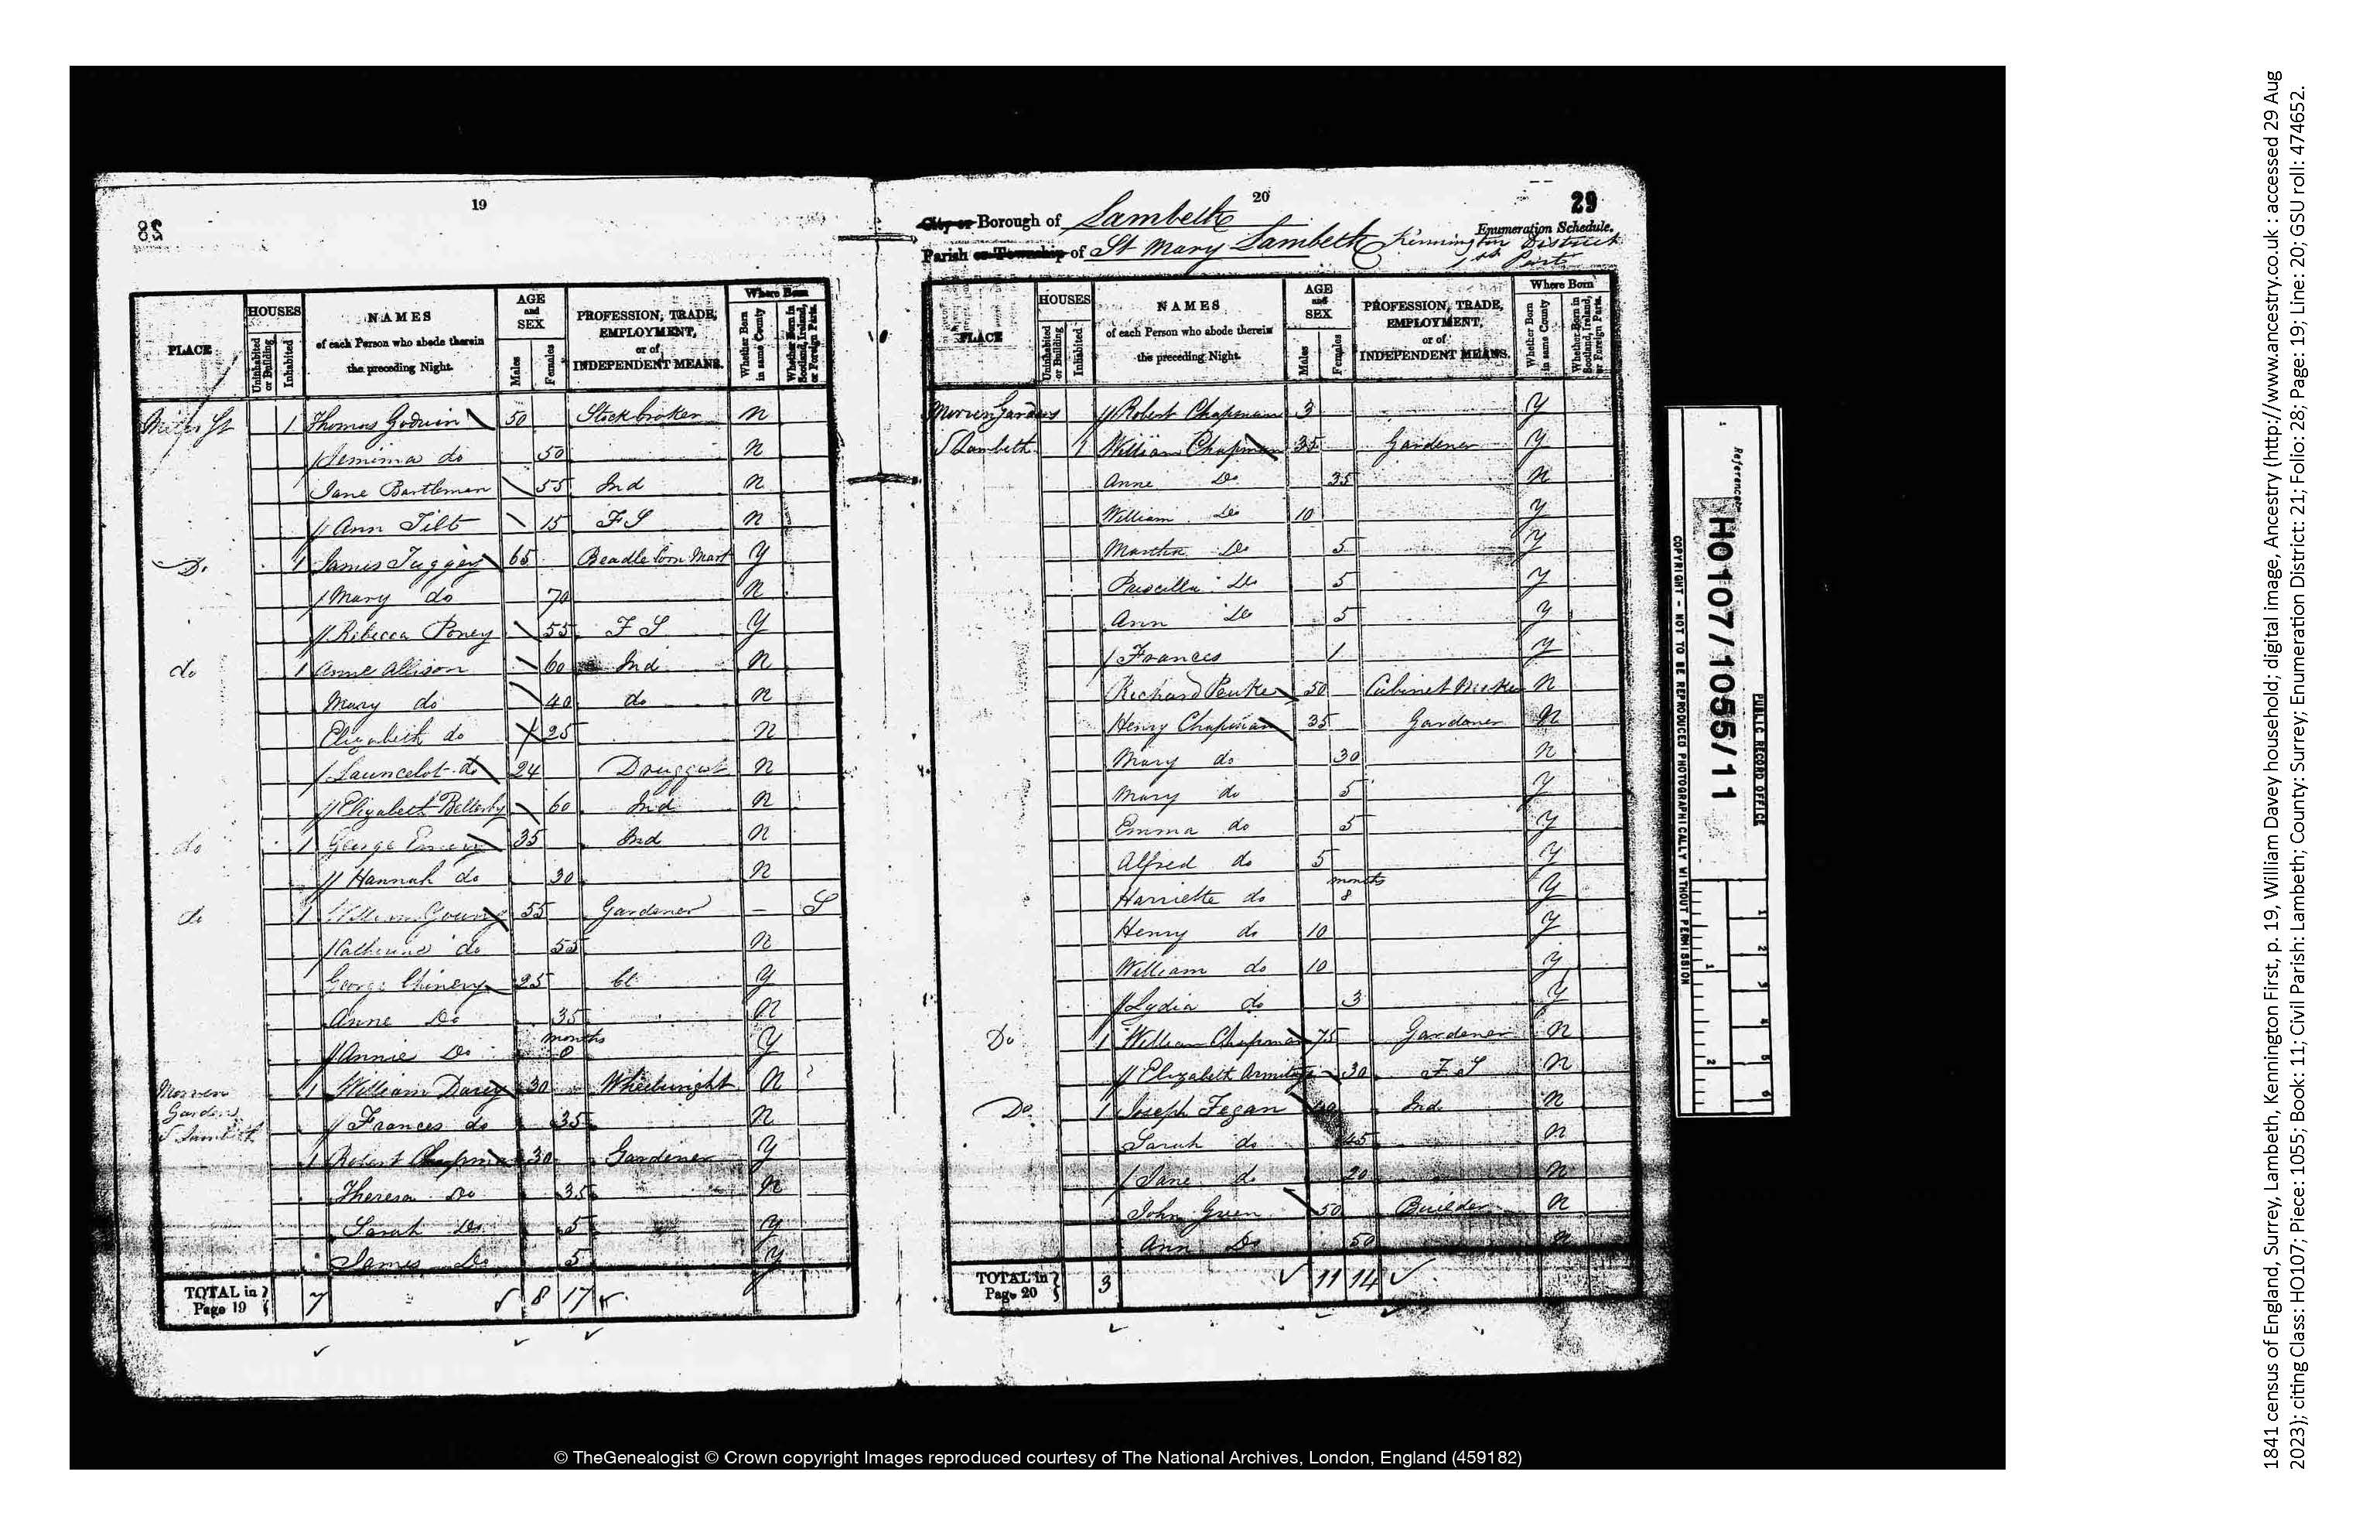 19
28
PLACE
HOUSES
Uninhabited or Building
Inhabited
NAMES
of each Person who abode therein
the preceding Night.
AGE
and
SEX
Males
Females
PROFESSION, TRADE,
EMPLOYMENT,
or of
INDEPENDENT MEANS.
Where Born
Whether Born in same County
Whether Born in Scotland, Ireland, or Foreign Parts.
1 Thomas Godwin 50 Stockbroker N
Jemima do 50 N
Jane Bartleman 55 Ind N
Ann Tilt 15 F S N
1 James 65 Beadle Corn Mart Y
Mary do 70 N
Rebecca Poney 55 F S Y
do 1 Anne Allison 60 Ind N
Mary do 40 do N
Elizabeth do 25 N
Launcelot do 24 Druggist N
Elizabeth 60 Ind N
do 1 George Emery 35 Ind N
Hannah do 30 N
do 1 William Young 55 Gardener – S
Katherine do 55 N
George Chinery 25 Cl Y
Anne Do 35 N
months
Annie Do Y
1 William Davey 30 Wheelwright N
Gardens
S Lambeth
Frances do 35 N
1 Robert Chapman 30 Gardener Y
Theresa Do 35 N
Sarah Do 5 Y
James Do 5 Y
TOTAL in Page 19 7 8 17
20
29
City or Borough of Lambeth
Enumeration Schedule.
Parish or Township of St Mary Lambeth Kennington District
1st Part
PLACE
HOUSES
Uninhabited or Building
Inhabited
NAMES
of each Person who abode therein
the preceding Night.
AGE
and
SEX
Males
Females
PROFESSION, TRADE,
EMPLOYMENT,
or of
INDEPENDENT MEANS.
Where Born
Whether Born in same County
Whether Born in Scotland, Ireland, or Foreign Parts.
Gardens Robert Chapman 3 Y
S Lambeth 1 William Chapman 35 Gardener Y
Anne Do 35 N
William Do 10 Y
Martha Do 5 Y
Priscilla Do 5 Y
Ann Do 5 Y
Frances 1 Y
Richard 50 Cabinet Maker N
Henry Chapman 35 Gardener N
Mary do 30 N
Mary do 5 Y
Emma do 5 Y
Alfred do 5 Y
months
Harriette do 8 Y
Henry do 10 Y
William do 10 Y
Lydia do 3 Y
Do 1 William Chapman 75 Gardener N
Elizabeth Armitage 30 F S N
Do 1 Joseph Fegan Ind N
Sarah do 45 N
Jane do 20 N
John Green 50 Builder N
Ann Do 50
TOTAL in Page 20 3 11 14
Reference:-
HO107/1055/11
PUBLIC RECORD OFFICE
COPYRIGHT - NOT TO BE REPRODUCED PHOTOGRAPHICALLY WITHOUT PERMISSION
© TheGenealogist © Crown copyright Images reproduced courtesy of The National Archives, London, England (459182)
1841 census of England, Surrey, Lambeth, Kennington First, p. 19, William Davey household; digital image, Ancestry (http://www.ancestry.co.uk : accessed 29 Aug
2023); citing Class: HO107; Piece: 1055; Book: 11; Civil Parish: Lambeth; County: Surrey; Enumeration District: 21; Folio: 28; Page: 19; Line: 20; GSU roll: 474652.